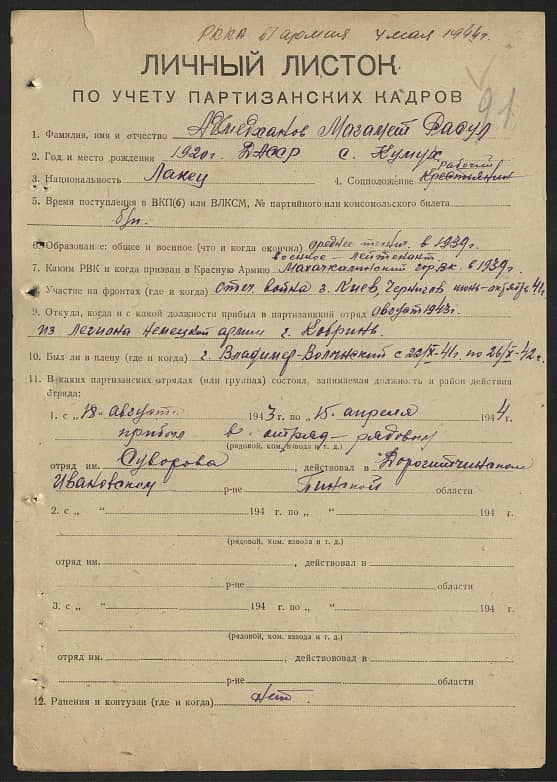 РККА 61 армия 4 мая 1944г.
ЛИЧНЫЙ ЛИСТОК
ПО УЧЕТУ ПАРТИЗАНСКИХ КАДРОВ
91
1. Фамилия, имя и отчество Магамет
2. Год и место рождения 1920г. ДАССР с. Кумух
рабочий
3. Национальность Лакец 4. Соцположение Крестьянин
5. Время поступления в ВКП(б) или ВЛКСМ, № партийного или комсомольского билета
б/п.
6. Образование: общее и военное (что и когда окончил) среднее техн. в 1939г.
военное - лейтенант
7. Каким РВК и когда призван в Красную Армию Махачкалинский горвк. в 1939г.
8. Участие на фронтах (где и когда) отеч. война г. Киев, Чернигов июнь-октябрь 41г.
9. Откуда, когда и с какой должности прибыл в партизанский отряд август 1943г.
из легиона немецкой армии г. Кобринь
10. Был ли в плену (где и когда) г. Владимер-Волынский с 22/IX-41г. по 26/X-42г.
11. В каких партизанских отрядах (или группах) состоял, занимаемая должность и район действия
отряда:
1. с „18" августа 1943 г. по „15 апреля 1944 г.
прибыл в отряд - рядовым
(рядовой, ком. взвода и т. д.)
отряд им. Суворова, действовал в Дорогитчинском
Ивановском р-не Пинской области
2. с „ " 194 г. по „ " 194 г.
(рядовой, ком. взвода и т. д.)
отряд им. , действовал в
р-не области
3. с „ " 194 г. по „ " 194 г.
(рядовой, ком. взвода и т. д.)
отряд им. , действововал в
р-не области
12. Ранения и контузии (где и когда) нет